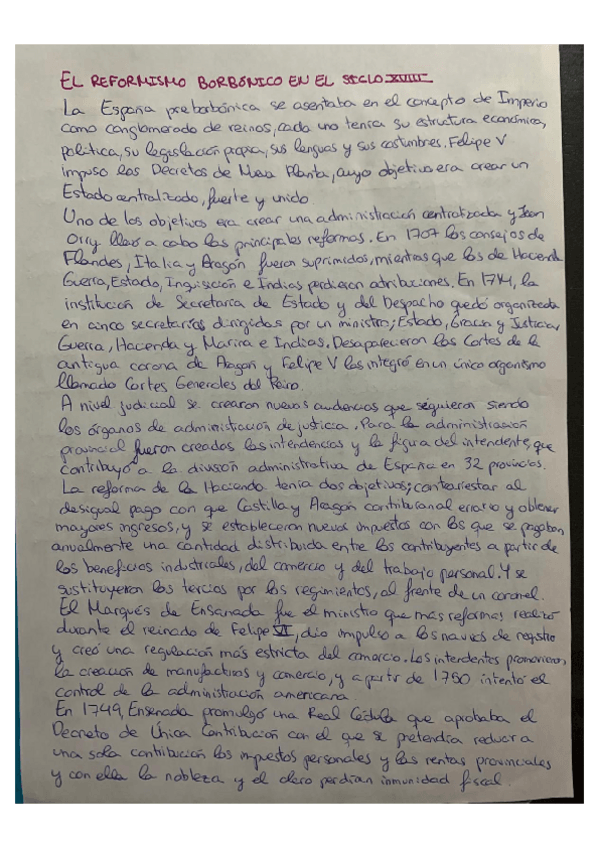 EL REFORMISMO BORBÓNICO EN EL SIGLO XVIII
La España preborbónica se asentaba en el concepto de Imperio
como conglomerado de reinos, cada uno tenía su estructura económica,
política, su legislación propia, sus lenguas y sus costumbres. Felipe V
impuso los Decretos de Nueva Planta, cuyo objetivo era crear un
Estado centralizado, fuerte y unido
Uno de los objetivos era crear una administración centralizada y Jean
Orry llevó a cabo las principales reformas. En 1707 los consejos de
Flandes, Italia y Aragón fueron suprimidos, mientras que los de Hacienda
Guerra, Estado, Inquisición e Indias perdieron atribuciones. En 1714, la
institución de Secretaría de Estado y del Despacho quedó organizada
en cinco secretarías dirigidas por un ministro; Estado, Gracia y Justicia,
Guerra, Hacienda y Marina e Indias. Desaparecieron las Cortes de la
antigua corona de Aragón y Felipe V las integró en un único organismo
llamado Cortes Generales del Reino.
A nivel judicial se crearon nuevas audiencias que siguieron siendo
los órganos de administración de justicia. Para la administración
provincial fueron creadas las intendencias y la figura del intendente, que
contribuyó a la división administrativa de España en 32 provincias.
La reforma de la Hacienda tenía dos objetivos; contrarrestar al
desigual pago con que Castilla y Aragón contribuían al erario y obtener
mayores ingresos, y se establecieron nuevos impuestos con los que se pagaban
anualmente una cantidad distribuida entre los contribuyentes a partir de
los beneficios industriales, del comercio y del trabajo personal. Y se
sustituyeron los tercios por los regimientos, al frente de un coronel.
El Marqués de Ensenada fue el ministro que más reformas realizó
durante el reinado de Felipe VI, dio impulso a los navíos de registro
y creó una regulación más estricta del comercio. Los intendentes promovieron,
la creación de manufacturas y comercio, y a partir de 1750 intentó el
control de la administración americana.
En 1749, Ensenada promulgó una Real Cédula que aprobaba el
Decreto de Única Contribución con el que se pretendía reducir a
una sola contribución los impuestos personales y las rentas provinciales
y con ella la nobleza y el clero perdían inmunidad fiscal.